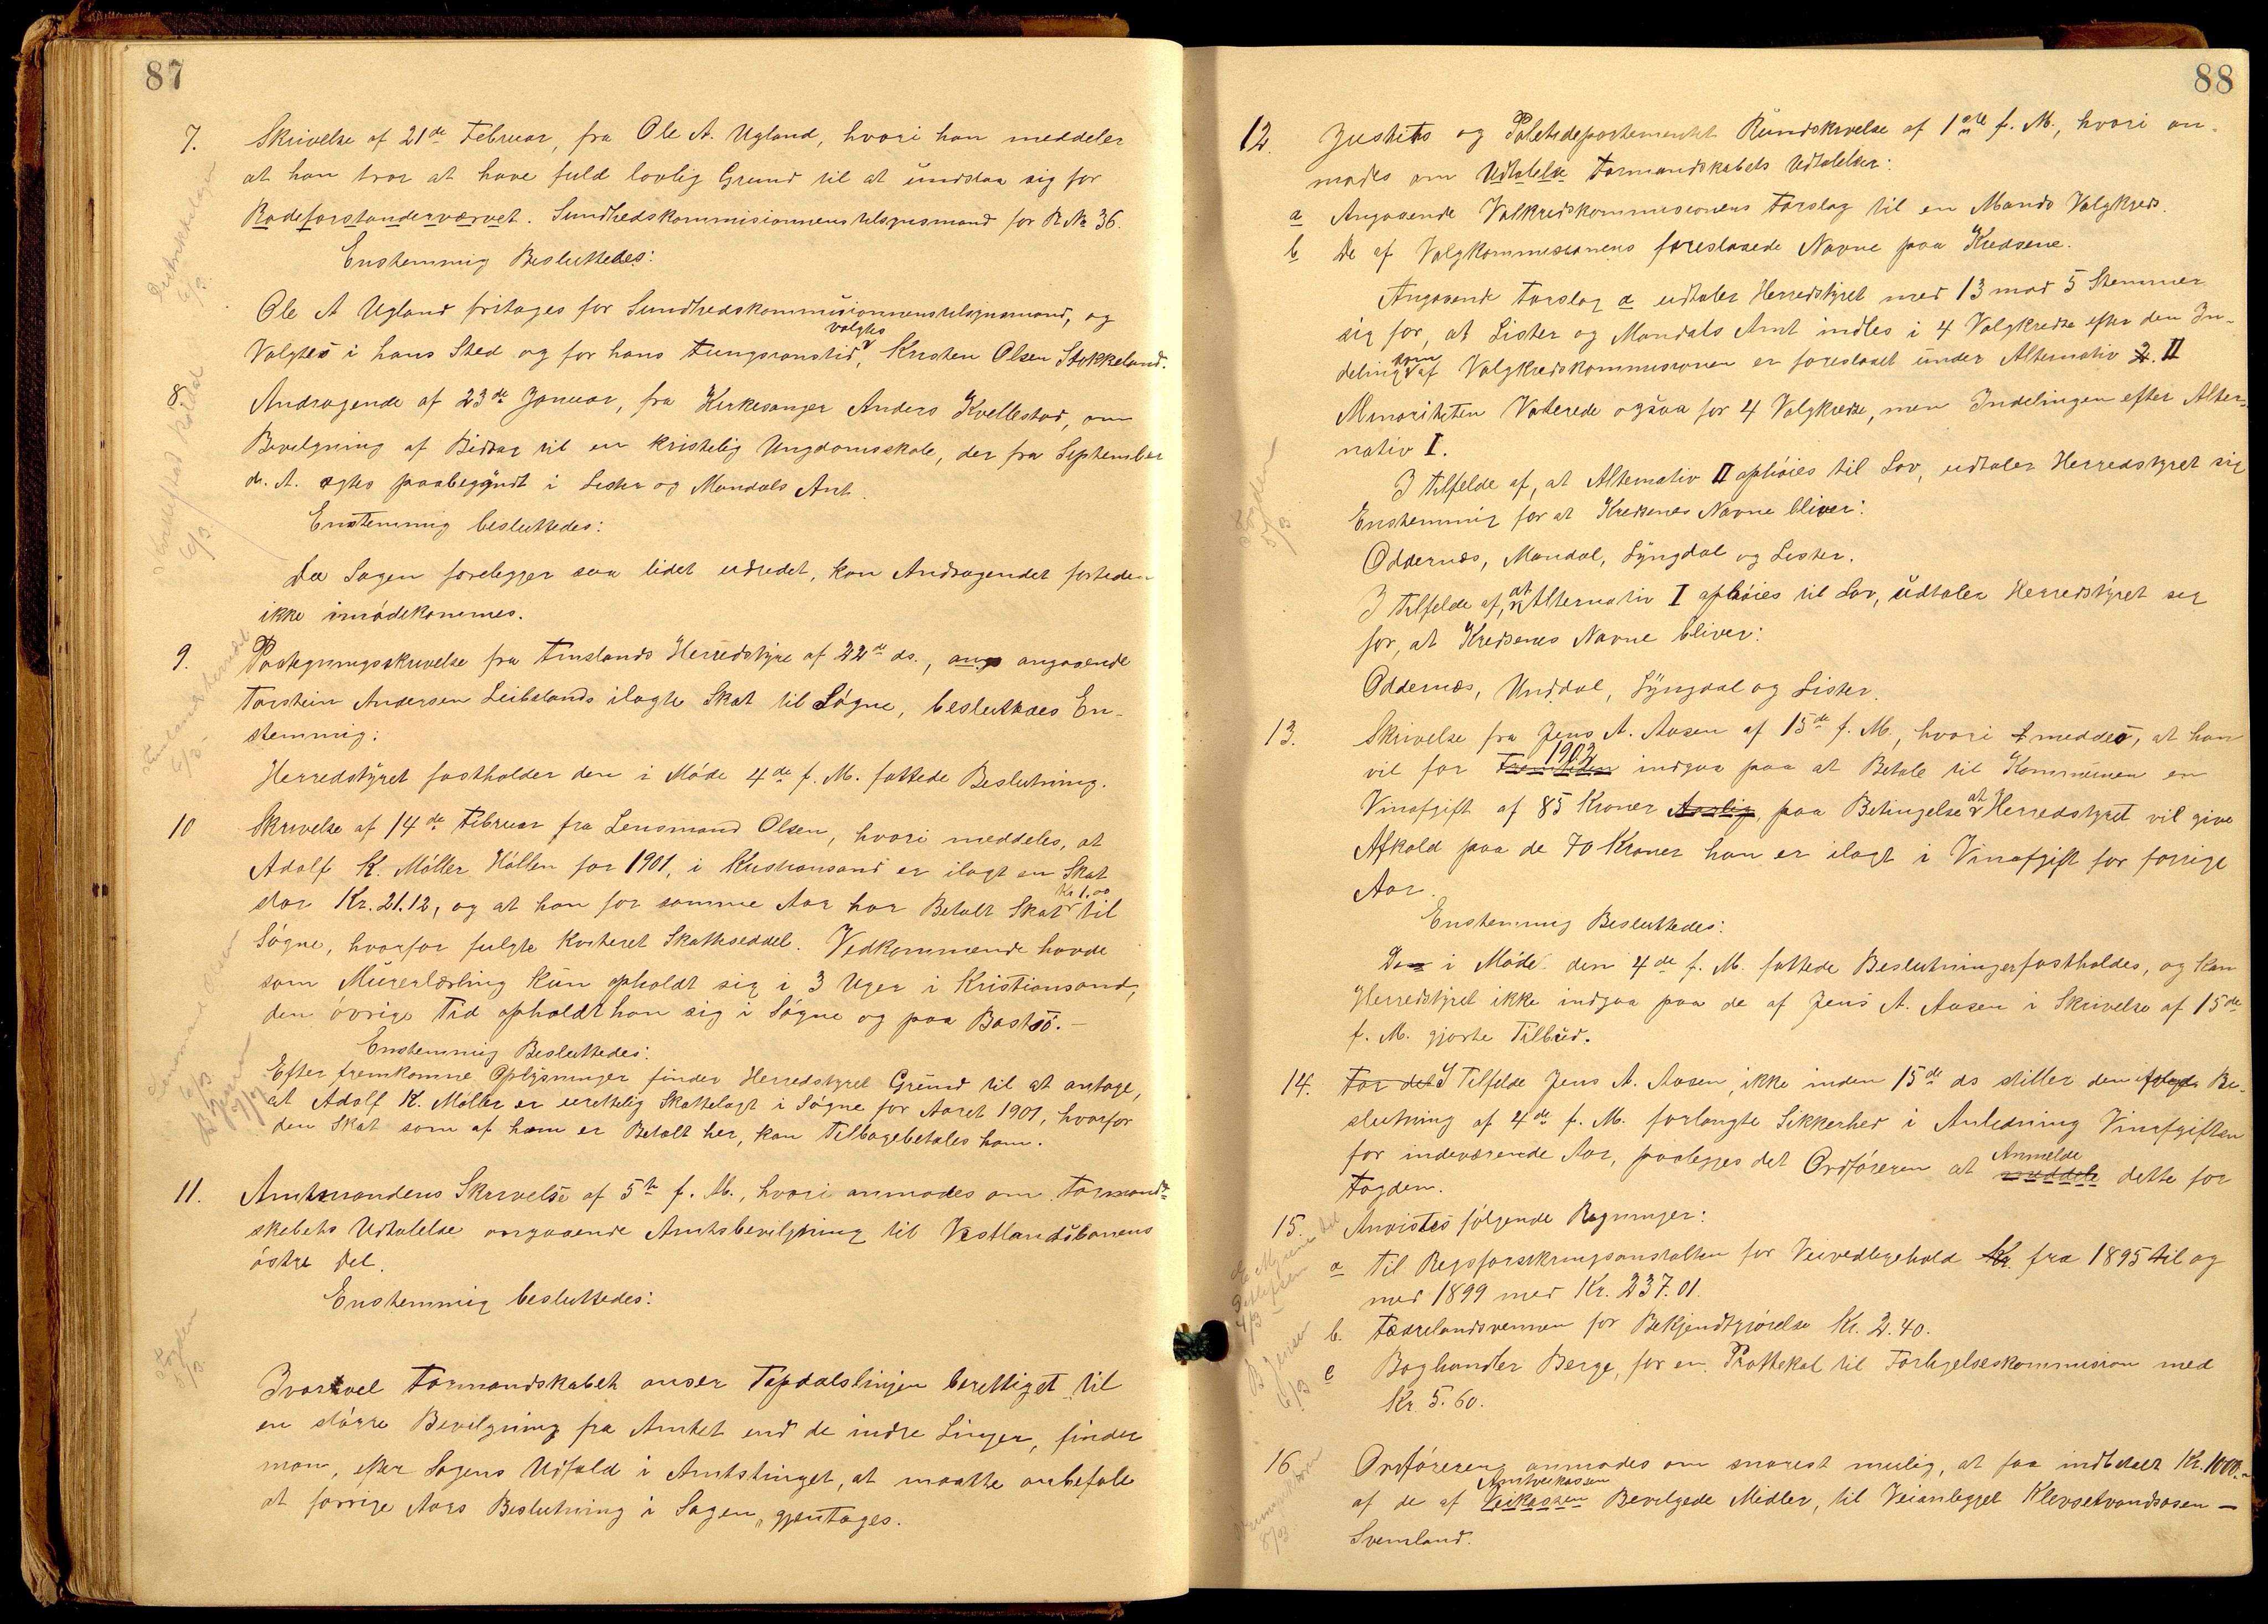 87
7. Skrivelse af 21de Februar, fra Ole A. Ugland, hvori han meddeler
at han tror at have fuld lovlig Grund til at undslaa sig for
Rodeforstanderværvet. Sundhedskommisionnens tilsynsmand for R. № 36.
Enstemmig Besluttedes:
Ole A Ugland fritages for Sundhedskommisionnenstilsynsmand, og
Valgtes i hans Sted og for hans Fungsionstid, valgtes Kristen Olsen Stokkeland.
8. Andragende af 23de Januar, fra Kirkesanger Anders Kvellestad, om
Bevilgning af Bidrag til en kristelig Ungdomsskole, der fra September
d. A. agtes paabegyndt i Lister og Mandals Amt.
Enstemmig besluttedes:
Da Sagen forelegger saa lidet udredet, kan Andragendet fortiden
ikke imødekommes.
9. Paategningsskrivelse fra Finslands Herredstyre af 22de ds., ang angaaende
Torstein Andersen Leibslands ilagte Skat til Søgne, besluttedes En-
stemmig:
Herredstyret fastholder den i Møde 4de f. M. fattede Beslutning.
10 Skrivelse af 14de Februar fra Lensmand Olsen, hvori meddeles, at
Adolf K. Møller Høllen for 1901, i Kristiansand er ilagt en Skat
stor Kr. 21.12, og at han for samme Aar har Betalt Skat Kr 1.00 til
Søgne, hvorfor fulgte kviteret Skatteseddel. Vedkommende havde
som Murerlærling kun opholdt sig i 3 Uger i Kristiansand,
den øvrige Tid opholdt han sig i Søgne og paa Bastø. –
Enstemmig Besluttedes:
Efter fremkomne Oplysninger finder Herredstyret Grund til at antage,
at Adolf K. Møller er urettelig Skattelagt i Søgne for Aaret 1901, hvorfor
den Skat som af ham er Betalt her, kan Tilbagebetales ham.
11. Amtmandens Skrivelse af 5te f. M., hvori anmodes om Formand-
skabets Udtalelse angaaende Amtsbevilgning til Vestlandsbanens
østre Del.
Enstemmig besluttedes:
Ivorvel Formandskabet anser Topdalslinjen berettiget til
en større Bevilgning fra Amtet end de indre Linjer, finder
man, efter Sagens Udfald i Amtstinget, at maatte anbefale
at forrige Aars Beslutning i Sagen, gjentages.
Distriktslægen
6/3
Kvellestad
6/3
Finland
6/3
Lensmand Olsen
6/3
Fogden
5/3
88
12. Justits og Politidepartementet Rundskrivelse af 1ste f. M., hvori an-
modes om Udtalelse Formandskabets Udtalelser:
a Angaaende Valkredskommisionens Forslag til en Mands Valgkreds.
b De af Valgkommissionens foreslaaede Navne paa Kredsene.
Angaaende Forslag a udtaler Herredstyret med 13 mod 5 Stemmer
sig for, at Lister og Mandals Amt indles i 4 Valgkredse efter den In-
deling som af Valgkredskommisionen er foreslaaet under Alternativ 2. II
Minoriteten Voterede ogsaa for 4 Valgkredse, men Indelingen efter Alter-
nativ I.
I tilfelde af, at Alternativ II ophøies til Lov, udtaler Herredstyret sig
Enstemmig for at Kredsenes Navne bliver:
Oddernæs, Mandal, Lyngdal og Lister.
I tilfelde af, at Alternativ I ophøies til Lov, udtaler Herredstyret seg
for, at Kredsenes Navne bliver:
Oddernæs, Undal, Lyngdal og Lister.
13. Skrivelse fra Jens A. Aasen af 15de f. M., hvori meddes, at han
vil for Fremtiden 1902 indgaa paa at Betale til Kommunen en
Vinafgift af 85 Kroner Aarlig, paa Betingelse at Herredstyret vil give
Afkald paa de 70 Kroner han er ilagt i Vinafgift for forrige
Aar.
Enstemmig Besluttedes:
Den i Møde den 4de f. M. fattede Beslutninger fastholdes, og kan
Herredstyret ikke indgaa paa de af Jens A. Aasen i Skrivelse af 15de
f. M. gjorte Tilbud.
14. For det I Tilfelde Jens A. Aasen, ikke inden 15de ds stiller den ifølge Be-
slutning af 4de f. M. forlangte Sikkerhed i Anledning Vinafgiften
for indeværende Aar, paalegges det Ordføreren at meddele Anmelde dette for
Fogden.
15. Anvistes følgende Regninger:
a Til Regsforsikringsanstalten for Veivedligehold Kr. fra 1895 til og
med 1899 med Kr. 237.01.
b. Fædrelandsvennen for Bekjendtgjørelse Kr. 2.40.
c Boghandler Berge, for en Prottekol til Forligelseskommision med
Kr. 5.60.
16. Ordføreren anmodes om snarest mulig, at faa indbetalt Kr. 1000.–
af de af Veikassen Amtveikassen Bevilgede Midler, til Veianlegget Klevsetvandsosen –
Svemland.
Fogden
5/3
B Jensen
6/3
8/3